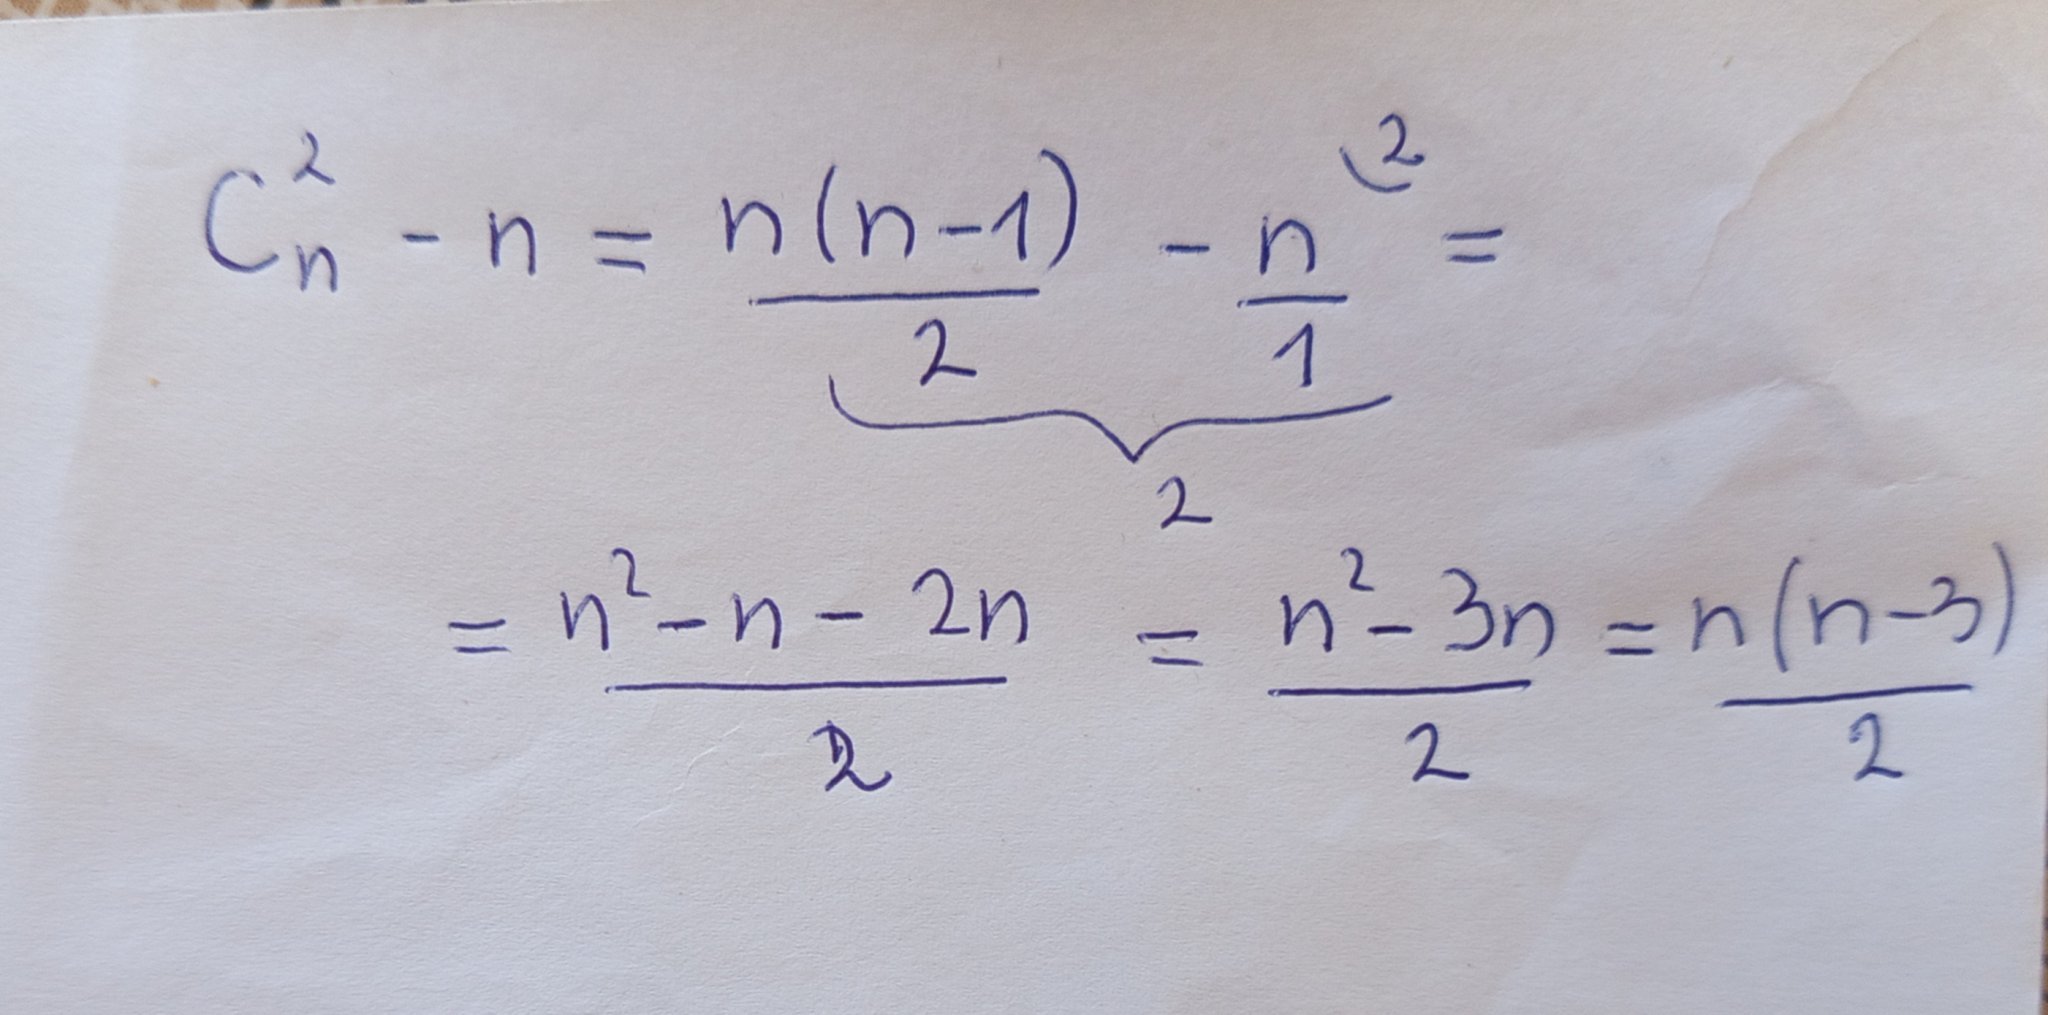 C²ₙ - n = n(n-1)/2 - n/1 ⌣² =
2
= n²-n-2n/2 = n²-3n/2 = n(n-3)/2